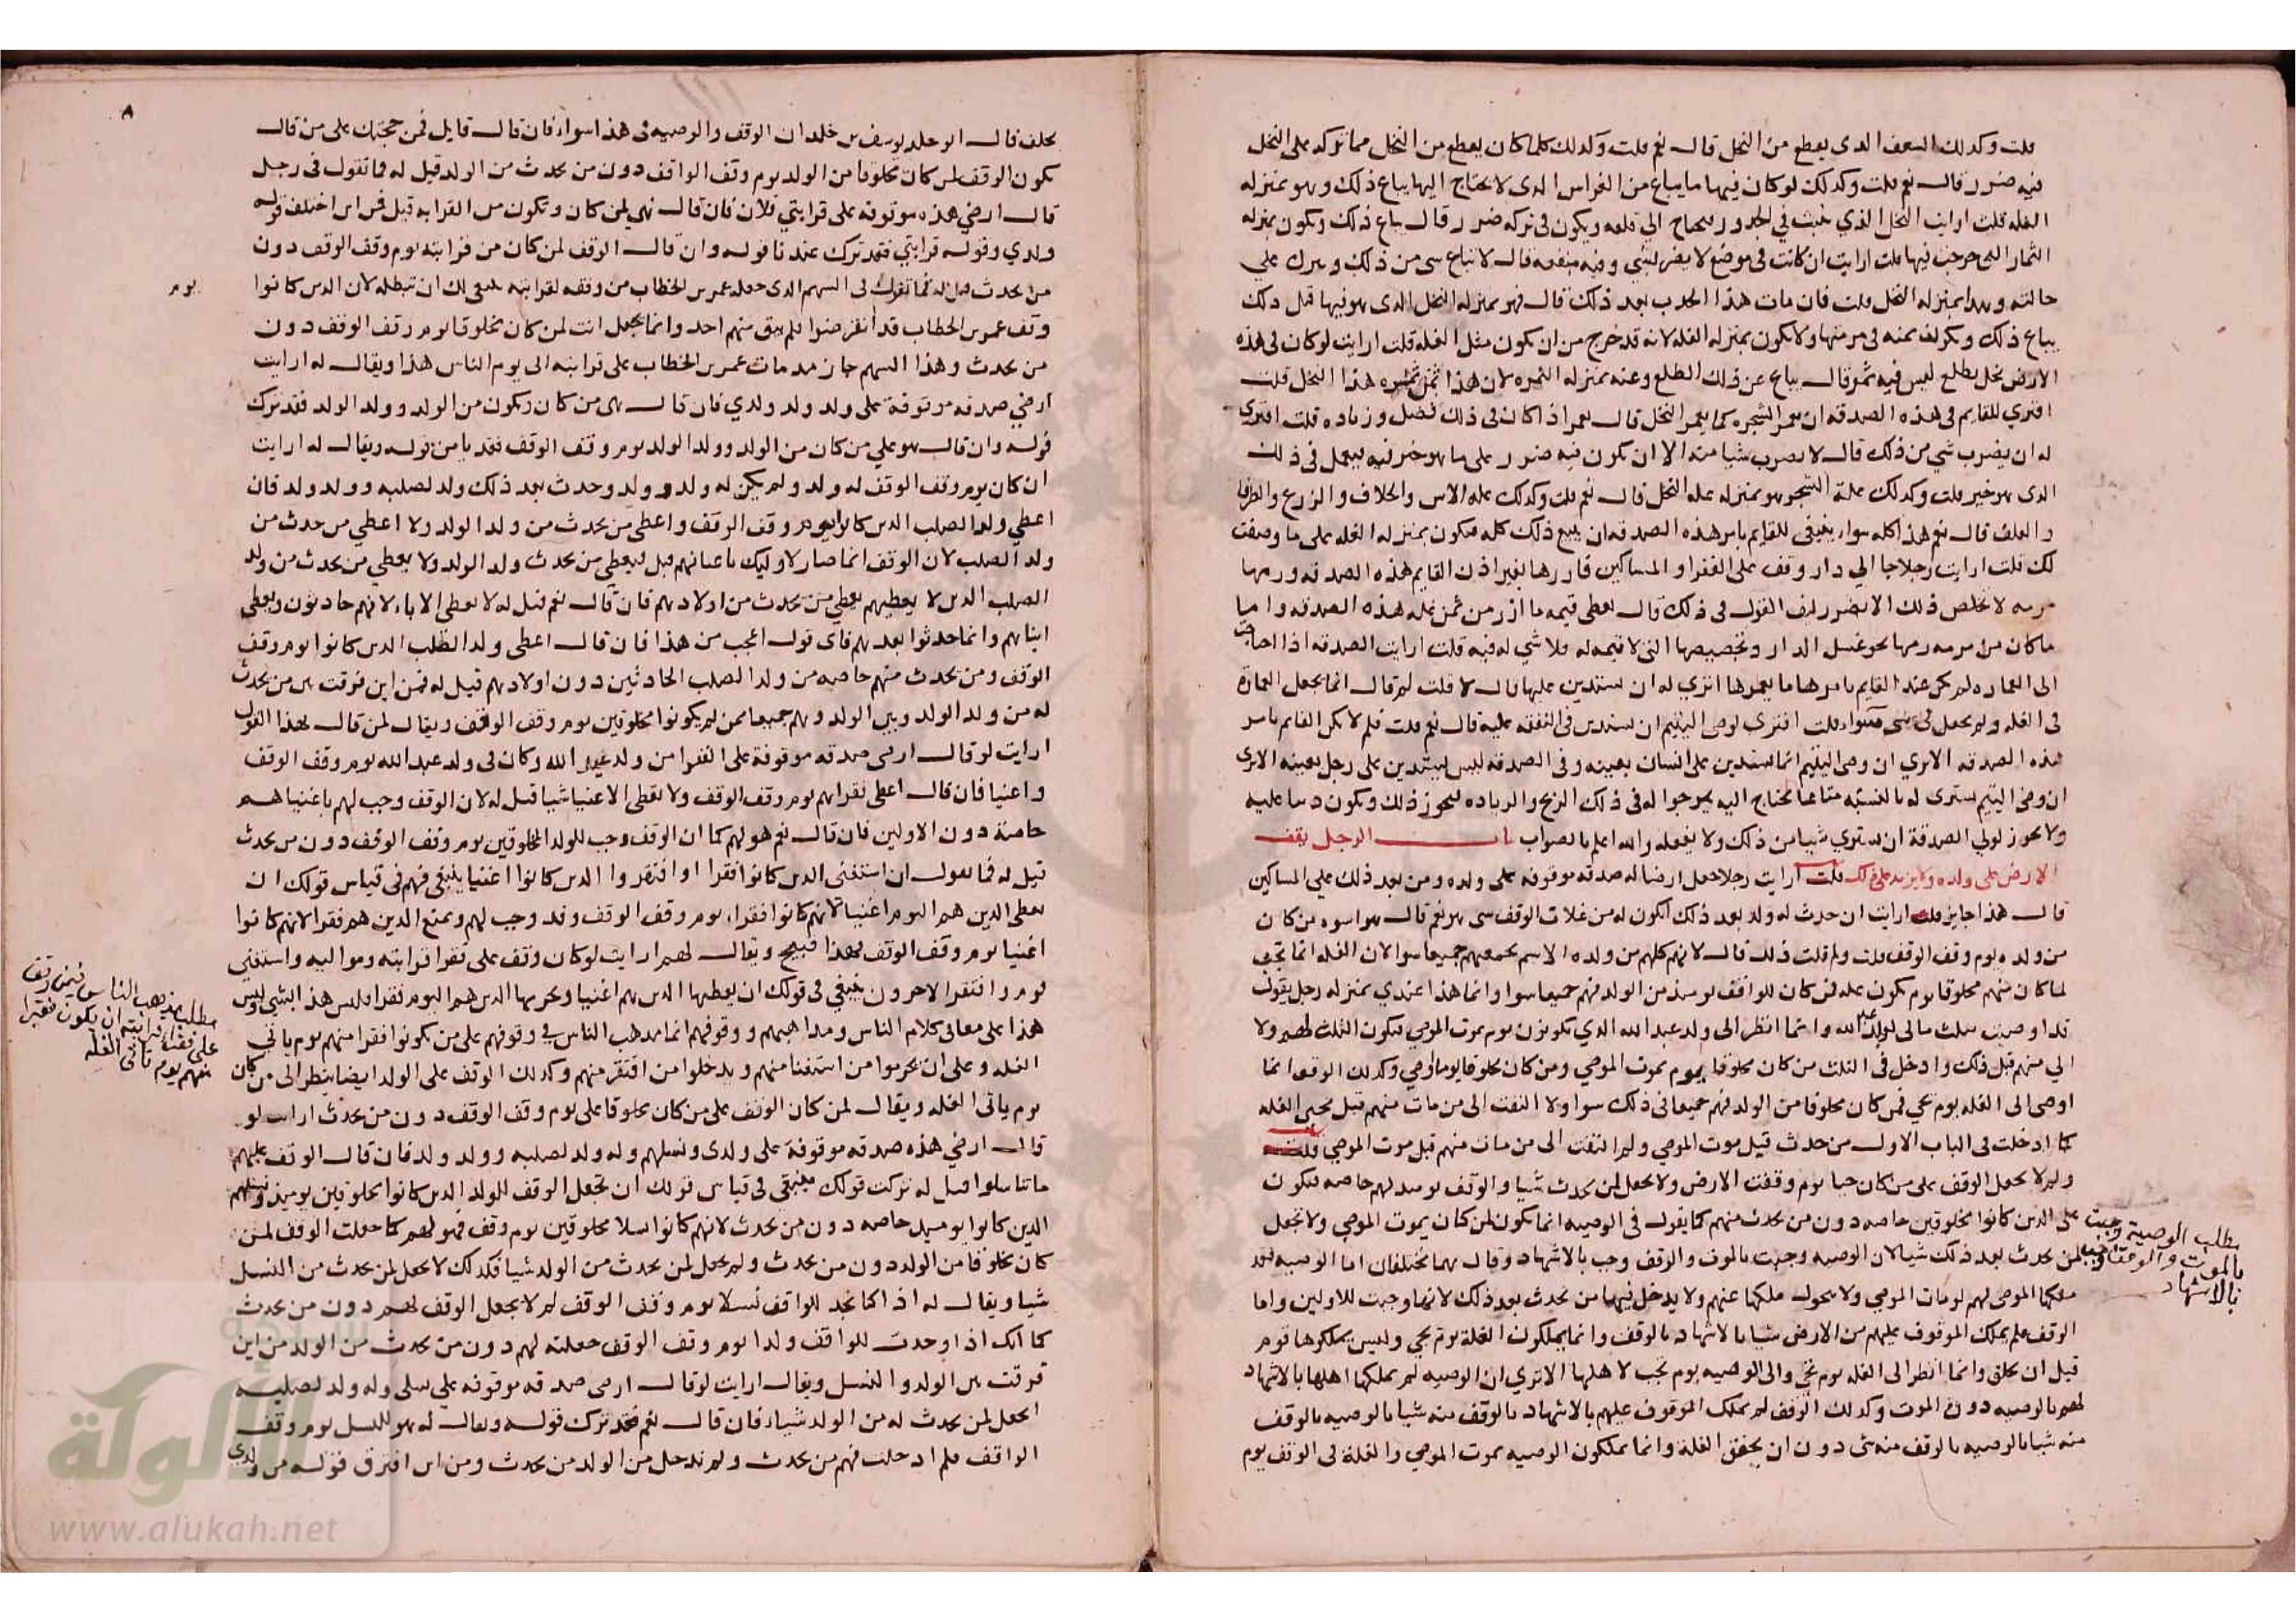 قلت وكذلك السعف الذي يقطع من النخل قال نعم قلت وكذلك كلما كان يقطع من النخل مما تركه على النخل
فيه ضرر قال نعم قلت وكذلك لو كان فيها ما يباع من الغراس الذي لا يحتاج اليها يباع ذلك وهو بمنزله
الغله قلت ارايت النخل الذي نبت في الجدور يحتاج الى قلعه ويكون في تركه ضرر قال يباع ذلك ويكون بمنزله
الثمار التي خرجت فيها قلت ارايت ان كانت في موضع لا يضر بشي وفيه منفعه قال لا تباع شي من ذلك ويترك على
حالته وهذا بمنزله النخل قلت فان مات هذا بعد ذلك قال فهو بمنزله النخل الذي هو فيها قبل ذلك
يباع ذلك ويكون ثمنه في مرمتها ولا يكون بمنزله الغله لانه قد خرج من ان يكون مثل الغله قلت ارايت لو كان في هذه
الارض نخل يطلع ليس فيه ثمر قال يباع عن ذلك الطلع وعنه بمنزله الثمره لان هذا ثمره هذا النخل قلت
افترى للقايم في هذه الصدقه ان يعمر الشجره كما يعمر النخل قال يعمر اذا كان في ذلك فضل وزياده قلت افترى
له ان يضرب شي من ذلك قال لا يضرب شيا منه الا ان يكون فيه ضرر على ما هو خير فيه فيعمل في ذلك
الذي هو خير قلت وكذلك غلة الشجر هو بمنزله غله النخل قال نعم قلت وكذلك غله الاس والخلاف والزرع والطرفا
والعلف قال نعم هذا كله سواء ينبغي للقايم بامر هذه الصدقه ان يبيع ذلك كله فيكون بمنزله الغله على ما وصفت
لك قلت ارايت رجلا جا الى دار وقف على الفقرا والمساكين فازرها بغير اذن القايم بهذه الصدقه ورمها
مرمه لا تخلص ذلك الا بضرر كيف القول في ذلك قال يعطى قيمه ما ازر من ثمن غله هذه الصدقه واما
ما كان من مرمه رمها نحو غسل الدار وتجصيصها التي لا قيمه له فلا شي له فيه قلت ارايت الصدقه اذا احتاجت
الى العماره لم يكن عند القايم بامرها ما يعمرها اترى له ان يستدين عليها قال لا قلت لم قال انما يجعل العمارة
في الغله ولم يجعل في شي سواء قلت افترى لوصي اليتيم ان يستدين في النفقه عليه قال نعم قلت فلم لا يكن القايم بامر
هذه الصدقه الا ترى ان وصي اليتيم انما يستدين على انسان بعينه وفي الصدقه ليس يستدين على رجل بعينه الا ترى
ان وصي اليتيم يشترى له بالنسئه متاعا يحتاج اليه يرجوا له في ذلك الربح والزياده فيجوز ذلك ويكون دينا عليه
ولا يجوز لولي الصدقة ان يشتري شيا من ذلك ولا يفعله والله اعلم بالصواب باب الرجل يقف
الارض على ولده ولا يزيد على ذلك قلت ارايت رجلا جعل ارضا له صدقه موقوفه على ولده ومن بعد ذلك على المساكين
قال هذا جايز قلت ارايت ان حدث له ولد بعد ذلك ايكون له من غلات الوقف شي هو نعم قال هو اسوه من كان
من ولده يوم وقف الوقف قلت ولم قلت ذلك قال لانهم كلهم من ولده الاسم يجمعهم جميعا سوا لان الغله انما تجب
لما كان منهم مخلوقا يوم يكون غله فمن كان للواقف يوميذ من الولد فهم جميعا سوا وانما هذا عندي بمنزله رجل يقول
قد اوصيت بثلث مالى لولد عبد الله وانما انظر الى ولد عبد الله الذي يكونون يوم يموت الموصي فيكون الثلث لهم ولا
الي منهم قبل ذلك وادخل في الثلث من كان مخلوقا يوم يموت الموصي ومن كان مخلوقا يوم اوصي وكذلك الوقف انما
اوصى الى الغله يوم تجي فمن كان مخلوقا من الولد فهم جميعا في ذلك سوا ولا التفت الى من مات منهم قبل مجي الغله
كما ادخلت في الباب الاول من حدث قبل موت الموصي ولم التفت الى من مات منهم قبل موت الموصي قلت
ولم لا يجعل الوقف على من كان حيا يوم وقفت الارض ولا يجعل لمن يحدث شيا والوقف يوميذ لهم خاصه فيكون
على الذين كانوا مخلوقين خاصه دون من يحدث منهم كما يقول في الوصيه انما يكون لمن كان يموت الموصي ولا تجعل
لمن يحدث بعد ذلك شيا لان الوصيه وجبت بالموت والوقف وجب بالاشهاد وقال هما مختلفان اما الوصيه فقد
ملكها الموصى لهم يوم مات الموصي ولا يحول ملكها عنهم ولا يدخل فيها من يحدث بعد ذلك لانها وجبت للاولين واما
الوقف فلم يملك الموقوف عليهم من الارض شيا بالاشهاد بالوقف وانما يملكون الغلة يوم تجي وليس يملكوها قوم
قبل ان يخلق وانما انظر الى الغله يوم تجي والى الوصيه يوم تجب لاهلها الا ترى ان الوصيه لم يملكها اهلها بالاشهاد
لهم بالوصيه دون الموت وكذلك الوقف لم يملك الموقوف عليهم بالاشهاد بالوقف منه شيا بالوصيه بالوقف
منه شيا بالوصيه بالوقف منه شي دون ان يخفق الغلة وانما يملكون الوصيه بموت الموصي والغلة في الوقف يوم
مطلب الوصية وجبت
بالموت والوقف وجب
بالاشهاد
٨
يخلف قال ابو خلد يوسف بن خلد ان الوقف والوصيه في هذا سواء فان قال قايل فمن حجتك على من قال
يكون الوقف لمن كان مخلوقا من الولد يوم وقف الواقف دون من يحدث من الولد قيل له فما تقول في رجل
قال ارضي هذه موقوفه على قرابتي فلان فان قال نهي لمن كان ويكون من القرابه قيل فمن اين اختلف قوله
ولدي وقوله قرابتي فقد ترك عندنا قوله وان قال الوقف لمن كان من قرابته يوم وقف الوقف دون
من يحدث قيل له فما تقول في السهم الذي جعله عمر بن الخطاب من وقفه لقرابته ينبغي لك ان تبطله لان الذين كانوا
يوم
وقف عمر بن الخطاب قد انقرضوا فلم يبق منهم احد وانما يجعل انت لمن كان مخلوقا يوم وقف الوقف دون
من يحدث وهذا السهم جاز مذ مات عمر بن الخطاب على قرابته الى يوم الناس هذا ويقال له ارايت
ارضي صدقه موقوفة على ولد ولد ولدي فان قال هى من كان ويكون من الولد وولد الولد فقد ترك
قوله وان قال هو علي من كان من الولد وولد الولد يوم وقف الوقف فقد بامن قوله ويقال له ارايت
ان كان يوم وقف الوقف له ولد ولم يكن له ولد ولد وحدث بعد ذلك ولد لصلبه وولد ولد فان
اعطي ولد الصلب الذين كانوا يوم وقف الوقف واعطى من يحدث من ولد الولد ولا اعطي من حدث من
ولد الصلب لان الوقف انما صار لاوليك باعيانهم قيل فيعطى من يحدث ولد الولد ولا يعطي من يحدث من ولد
الصلب الذين لا يعطيهم يعطي من يحدث من اولادهم فان قال نعم قيل له لا يعطى الاباء لانهم حادثون ويعطى
ابناهم وانما حدثوا بعدهم فاى قول اعجب من هذا فان قال اعطى ولد الصلب الذين كانوا يوم وقف
الوقف ومن يحدث منهم خاصه من ولد الصلب الحادثين دون اولادهم قيل له فمن اين فرقت بين من يحدث
له من ولد الولد وبين الولد وهم جميعا ممن لم يكونوا مخلوقين يوم وقف الواقف ويقال لمن قال لهذا القول
ارايت لو قال ارضي صدقه موقوفة على الفقرا من ولد عبد الله وكان في ولد عبد الله يوم وقف الوقف
واغنيا فان قال اعطى فقراهم يوم وقف الوقف ولا يعطى الاغنيا شيا قيل له لان الوقف وجب لهم باغنياهم
خاصة دون الاولين فان قال نعم هو لهم كما ان الوقف وجب للولد المخلوقين يوم وقف الوقف دون من يحدث
قيل له فما تقول ان استغنى الذين كانوا فقرا او افتقروا الذين كانوا اغنيا ينبغي فهم في قياس قولك ان
يعطى الذين هم اليوم اغنيا لانهم كانوا فقراء يوم وقف الوقف وقد وجب لهم ويمنع الذين هم فقرا لانهم كانوا
اغنيا يوم وقف الوقف فهذا قبيح ويقال لهم ارايت لو كان وقف على فقرا قرابته ومواليه واستغنى
قوم وافتقر الاخرون ينبغي في قولك ان يعطيها الذين هم اغنيا ويحرمها الذين هم اليوم فقرا فليس هذا بشي وليس
هذا على معاني كلام الناس ومذاهبهم ووقوفهم انما مذهب الناس في وقوفهم على من يكونوا فقرا منهم يوم ياتي
الغله وعلى ان يحرموا من استغنا منهم ويدخلوا من افتقر منهم وكذلك الوقف على الولد ايضا ينظر الى من كان
يوم ياتى الغله ويقال لمن كان الوقف على من كان مخلوقا على يوم وقف الوقف دون من يحدث ارايت لو
قال ارضي هذه صدقه موقوفة على ولدى ونسلهم وله ولد لصلبه وولد ولد فان قال الوقف عليهم
ما تناسلوا قيل له تركت قولك فينبغي في قياس قولك ان تجعل الوقف للولد الذين كانوا مخلوقين يوميذ ونسلهم
الذين كانوا يوميذ خاصه دون من يحدث لانهم كانوا نسلا مخلوقين يوم وقف فهو لهم كما جعلت الوقف لمن
كان مخلوقا من الولد دون من يحدث ولم يجعل لمن يحدث من الولد شيا فكذلك لا يجعل لمن يحدث من النسل
شيا ويقال له اذا كنا نجد للواقف نسلا يوم وقف الوقف لم لا يجعل الوقف لهم دون من يحدث
كما انك اذا وجدت للواقف ولدا يوم وقف الوقف جعلته لهم دون من يحدث من الولد من اين
فرقت بين الولد والنسل ويقال ارايت لو قال ارضى صدقه موقوفه على نسلى وله ولد لصلبه
اتجعل لمن يحدث له من الولد شياء فان قال نعم فقد ترك قوله ويقال له هو للنسل يوم وقف
الواقف فلم ادخلت فيهم من يحدث ولم تدخل من الولد من يحدث ومن اين افترق قوله من ولدي
مطلب مذهب الناس فيمن وقف
على فقراء قرابته ان يكون فقيرا
منهم يوم تاتى الغله
شبكة
الألوكة
www.alukah.net